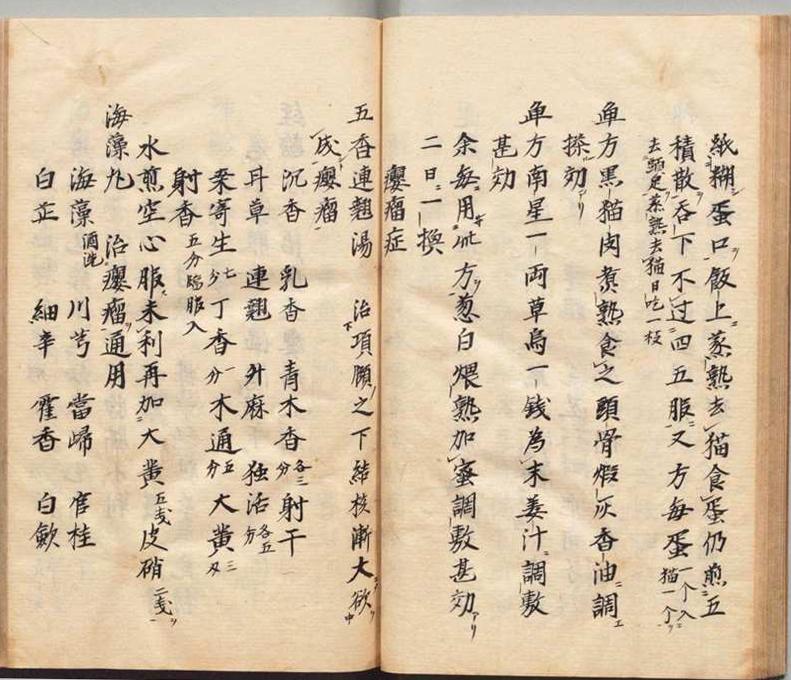 紙糊蛋口飯上蒸熟去猫食蛋仍煎五
積散呑下不过四五服又方每蛋一个入猫一个
去頭足蒸熟去猫日吃一枝
単方黒猫肉煑熟食之頭骨煆灰香油調
搽効アリ
単方南星一両草烏一銭為末姜汁調敷
甚効
余每用此方葱白煨熟加蜜調敷甚効アリ
二日一換
癭瘤症
五香連翹湯 治項顋之下結核漸大欲
成癭瘤
沉香 乳香 青木香各三分射干
耳草 連翹 升麻 独活各五分
桒寄生七分丁香一分木通五分大黄三刄
射香五分臨服入
水煎空心服未利再加大黄五戔皮硝二戔
海藻丸 治癭瘤通用
海藻酒洗 川芎 當帰 官桂
白芷 細辛 霍香 白歛